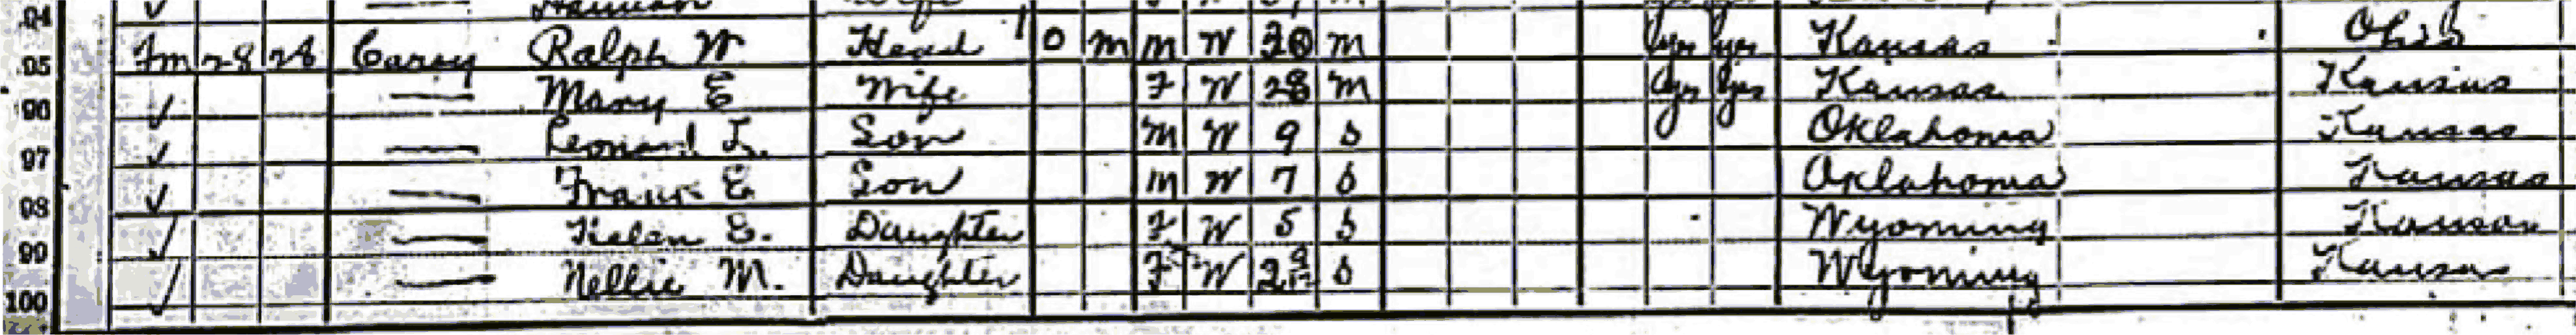 94 ✓ — Wife F W M
95 Fm 28 28 Carey Ralph W Head 1 O M M W M yes yes Kansas Ohio
96 ✓ — Mary E Wife F W 28 M yes yes Kansas Kansas
97 ✓ — Leonard L. Son M W 9 S Oklahoma Kansas
98 ✓ — Frank E Son M W 7 S Oklahoma Kansas
99 ✓ — Helen E. Daughter F W 5 S Wyoming Kansas
100 ✓ — Nellie M. Daughter F W 2 9/12 S Wyoming Kansas